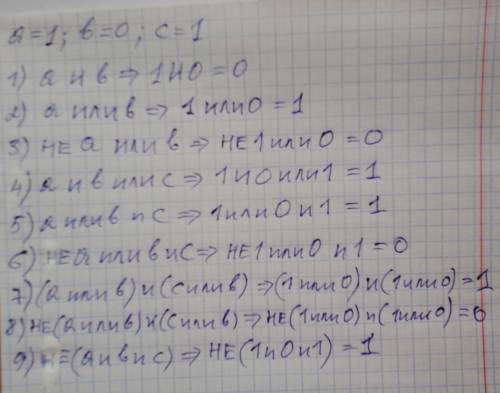 a=1; в=0; с=1
1) а и в ⇒ 1 и 0 = 0
2) а или в ⇒ 1 или 0 = 1
3) НЕ а или в ⇒ НЕ 1 или 0 = 0
4) а и в или с ⇒ 1 и 0 или 1 = 1
5) а или в и с ⇒ 1 или 0 и 1 = 1
6) НЕ а или в и с ⇒ НЕ 1 или 0 и 1 = 0
7) (а или в) и (с или в) ⇒ (1 или 0) и (1 или 0) = 1
8) НЕ (а или в) и (с или в) ⇒ НЕ (1 или 0) и (1 или 0) = 0
9) НЕ (а и в и с) ⇒ НЕ (1 и 0 и 1) = 1